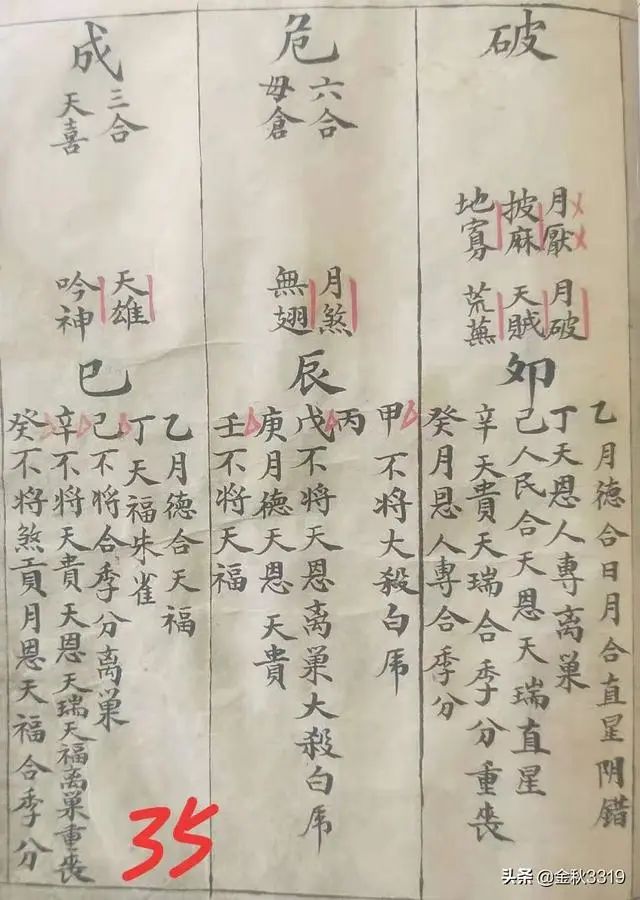 破
月厭
披麻
地寡
月破
天賊
荒蕪
卯
乙月德合日月合直星阴错
丁天恩人專离巢
己人民合天恩天瑞直星
辛天貴天瑞合季分重丧
癸月恩人專合季分
危
六合
母倉
月煞
無翅
辰
甲不将大殺白虎
丙
戊不将天恩离巢大殺白虎
庚月德天恩天貴
壬不将天福
成
三合
天喜
天雄
吟神
巳
乙月德合天福
丁天福朱雀
己不将合季分离巢
辛不将天貴天恩天瑞天福离巢重丧
癸不将煞貢月恩天福合季分
35
头条 @金秋3319